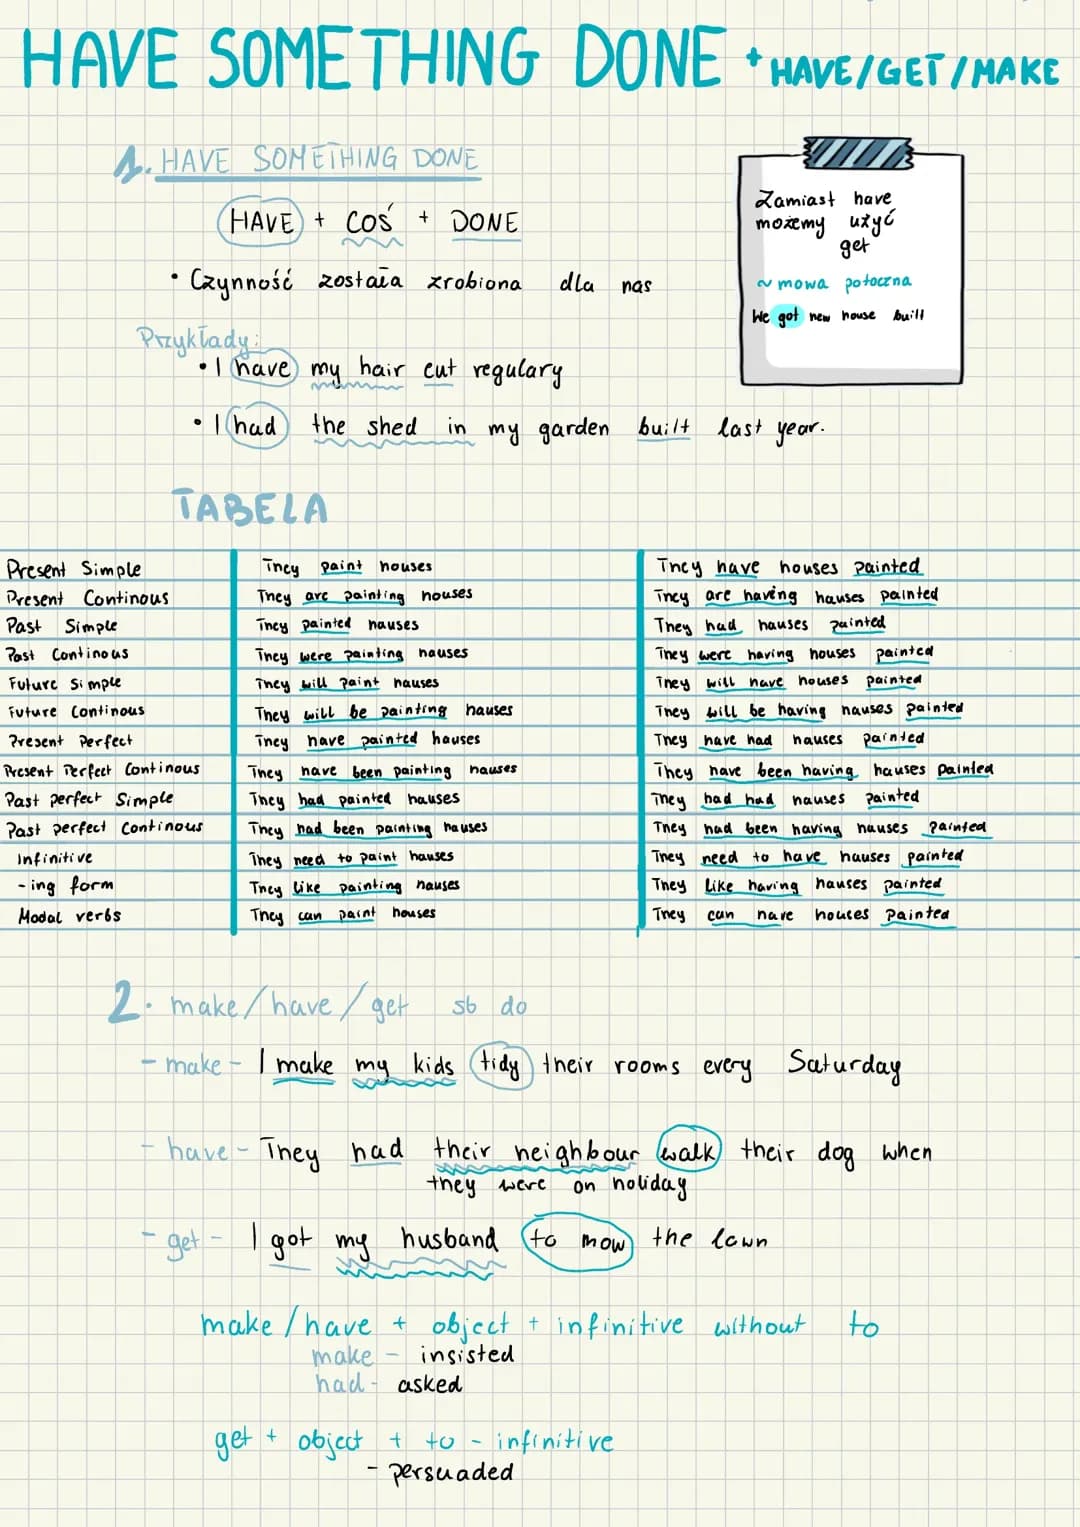 HAVE SOMETHING DONE + HAVE/GET/MAKE
1. HAVE SOMETHING DONE
HAVE + COŚ + DONE
• Czynność została zrobiona dla nas
Przykłady:
• I have my hair cut regulary
• I had the shed in my garden built last year.
Zamiast have
możemy użyć
get
~ mowa potoczna
We got new house built
TABELA
Present Simple They paint houses They have houses painted
Present Continous They are painting houses They are having hauses painted
Past Simple They painted hauses They had hauses painted
Past Continous They were painting hauses They were having houses painted
Future Simple They will paint hauses They will have houses painted
Future Continous They will be painting hauses They will be having hauses painted
Present Perfect They have painted hauses They have had hauses painted
Present Perfect Continous They have been painting hauses They have been having hauses painted
Past perfect Simple They had painted hauses They had had hauses painted
Past perfect Continous They had been painting hauses They had been having hauses painted
Infinitive They need to paint hauses They need to have hauses painted
- ing form They like painting hauses They like having hauses painted
Modal verbs They can paint houses They can have houses painted
2. make/have/get sb do
- make - I make my kids tidy their rooms every Saturday
- have - They had their neighbour walk their dog when
they were on holiday
- get - I got my husband to mow the lawn
make/have + object + infinitive without to
make - insisted
had - asked
get + object + to - infinitive
- persuaded